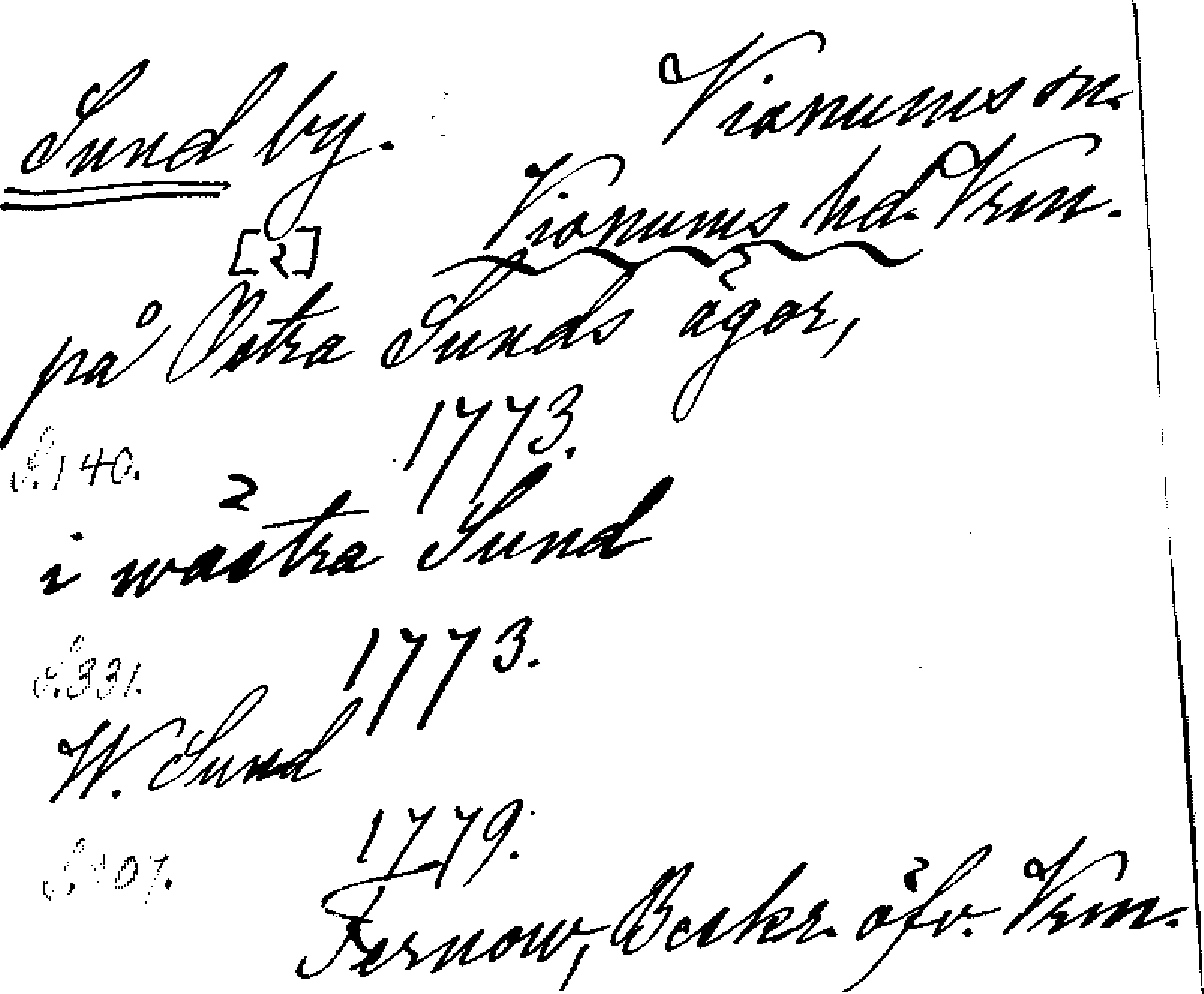 Sund by. Visnums sn.
Visnums hd. Vrm.
på Östra Sunds ägor,
1773.
S. 140.
i wästra Sund
1773.
S. 331.
W. Sund
1779.
Fernow, Beskr. öfv. Vrm.